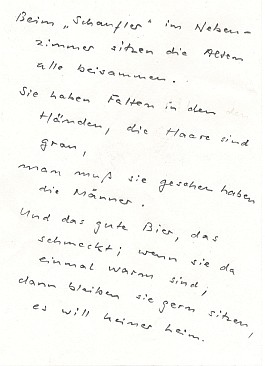 Beim „Schaufler“ im Neben-
zimmer sitzen die Alten
alle beisammen.
Sie haben Falten in den
Händen, die Haare sind
grau,
man muß sie gesehen haben
die Männer.
Und das gute Bier, das
schmeckt; wenn sie da
einmal warm sind,
dann bleiben sie gern sitzen,
es will keiner heim.